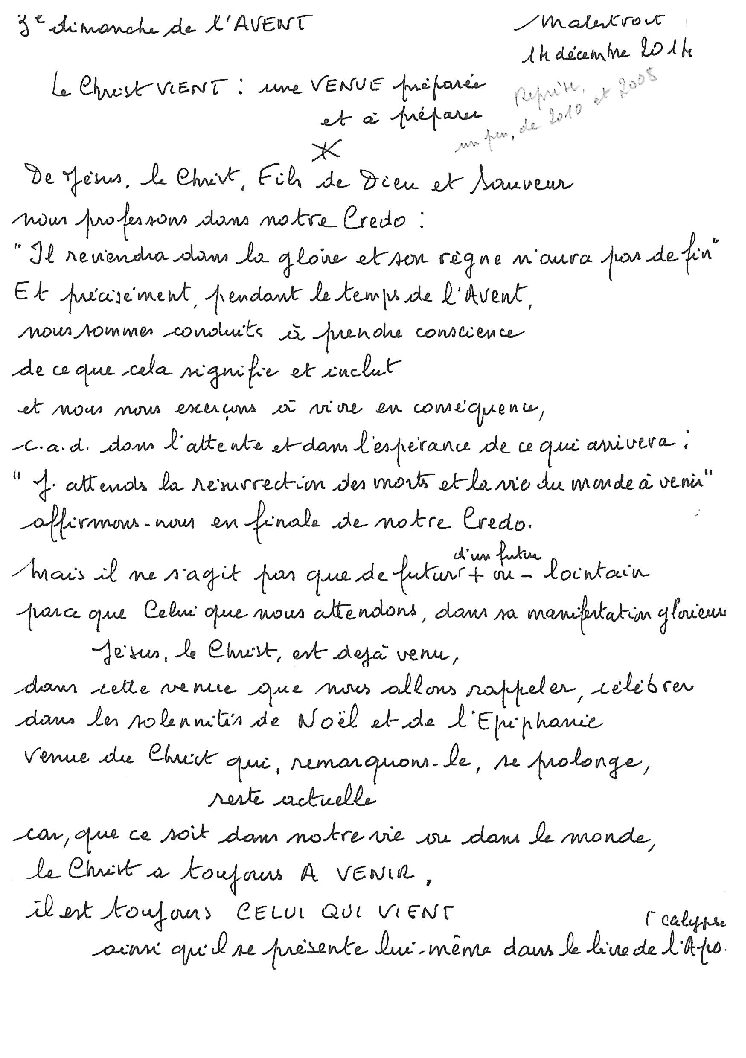 3e dimanche de l'AVENT
Malestroit
14 décembre 2014
Le Christ VIENT : une VENUE préparée
et à préparer
Reprise,
un peu, de 2010 et 2008
De Jésus, le Christ, Fils de Dieu et Sauveur
nous professons dans notre Credo :
"Il reviendra dans la gloire et son règne n'aura pas de fin"
Et précisément, pendant le temps de l'Avent,
nous sommes conduits à prendre conscience
de ce que cela signifie et inclut
et nous nous exerçons à vivre en conséquence,
c.a.d. dans l'attente et dans l'espérance de ce qui arrivera :
"J'attends la résurrection des morts et la vie du monde à venir"
affirmons-nous en finale de notre Credo.
d'un futur
Mais il ne s'agit pas que de futur + ou - lointain
parce que Celui que nous attendons, dans sa manifestation glorieuse
Jésus, le Christ, est dejà venu,
dans cette venue que nous allons rappeler, célébrer
dans les solennités de Noël et de l'Epiphanie
Venue du Christ qui, remarquons-le, se prolonge,
reste actuelle
car, que ce soit dans notre vie ou dans le monde,
le Christ a toujours A VENIR,
il est toujours CELUI QUI VIENT
calypse
ainsi qu'il se présente lui-même dans le livre de l'Apo